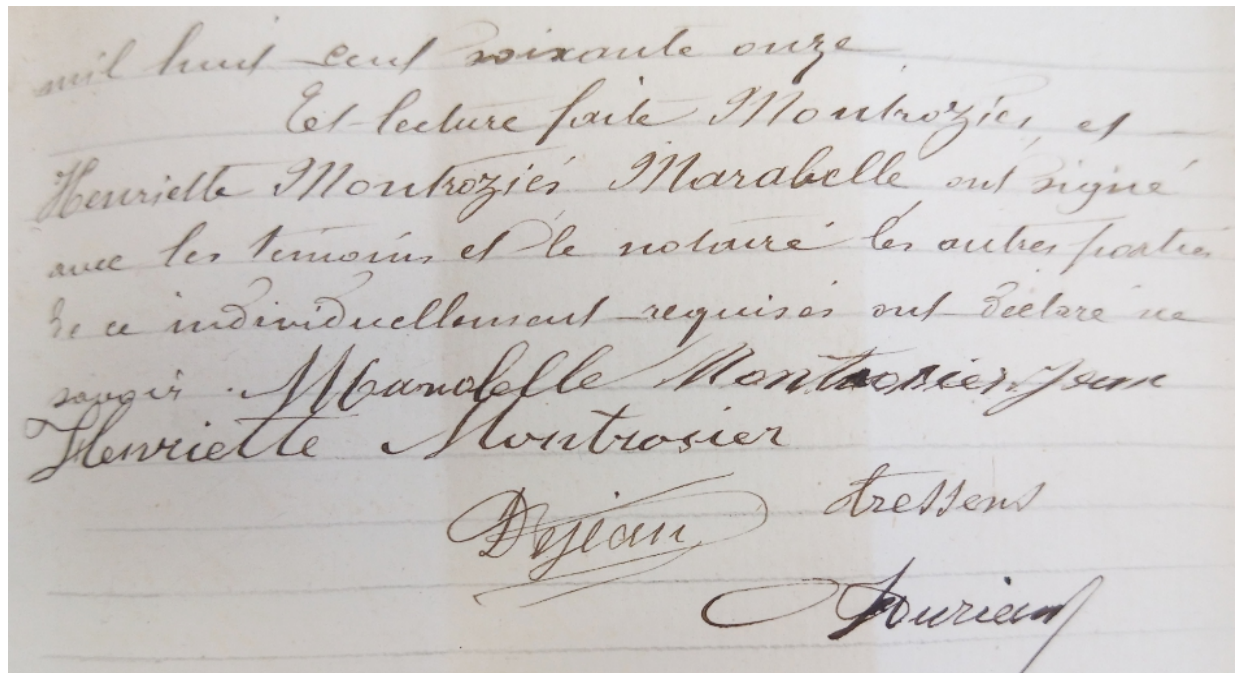 mil huit cent soixante onze
Et lecture faite Montroziés et
Henriette Montroziés Marabelle ont signé
avec les temoins et le notaire les autres parties
de ce individuellement requises ont déclaré ne
savoir. Marabelle Montrosier Jean
Henriette Montrosier
Dejean tressens